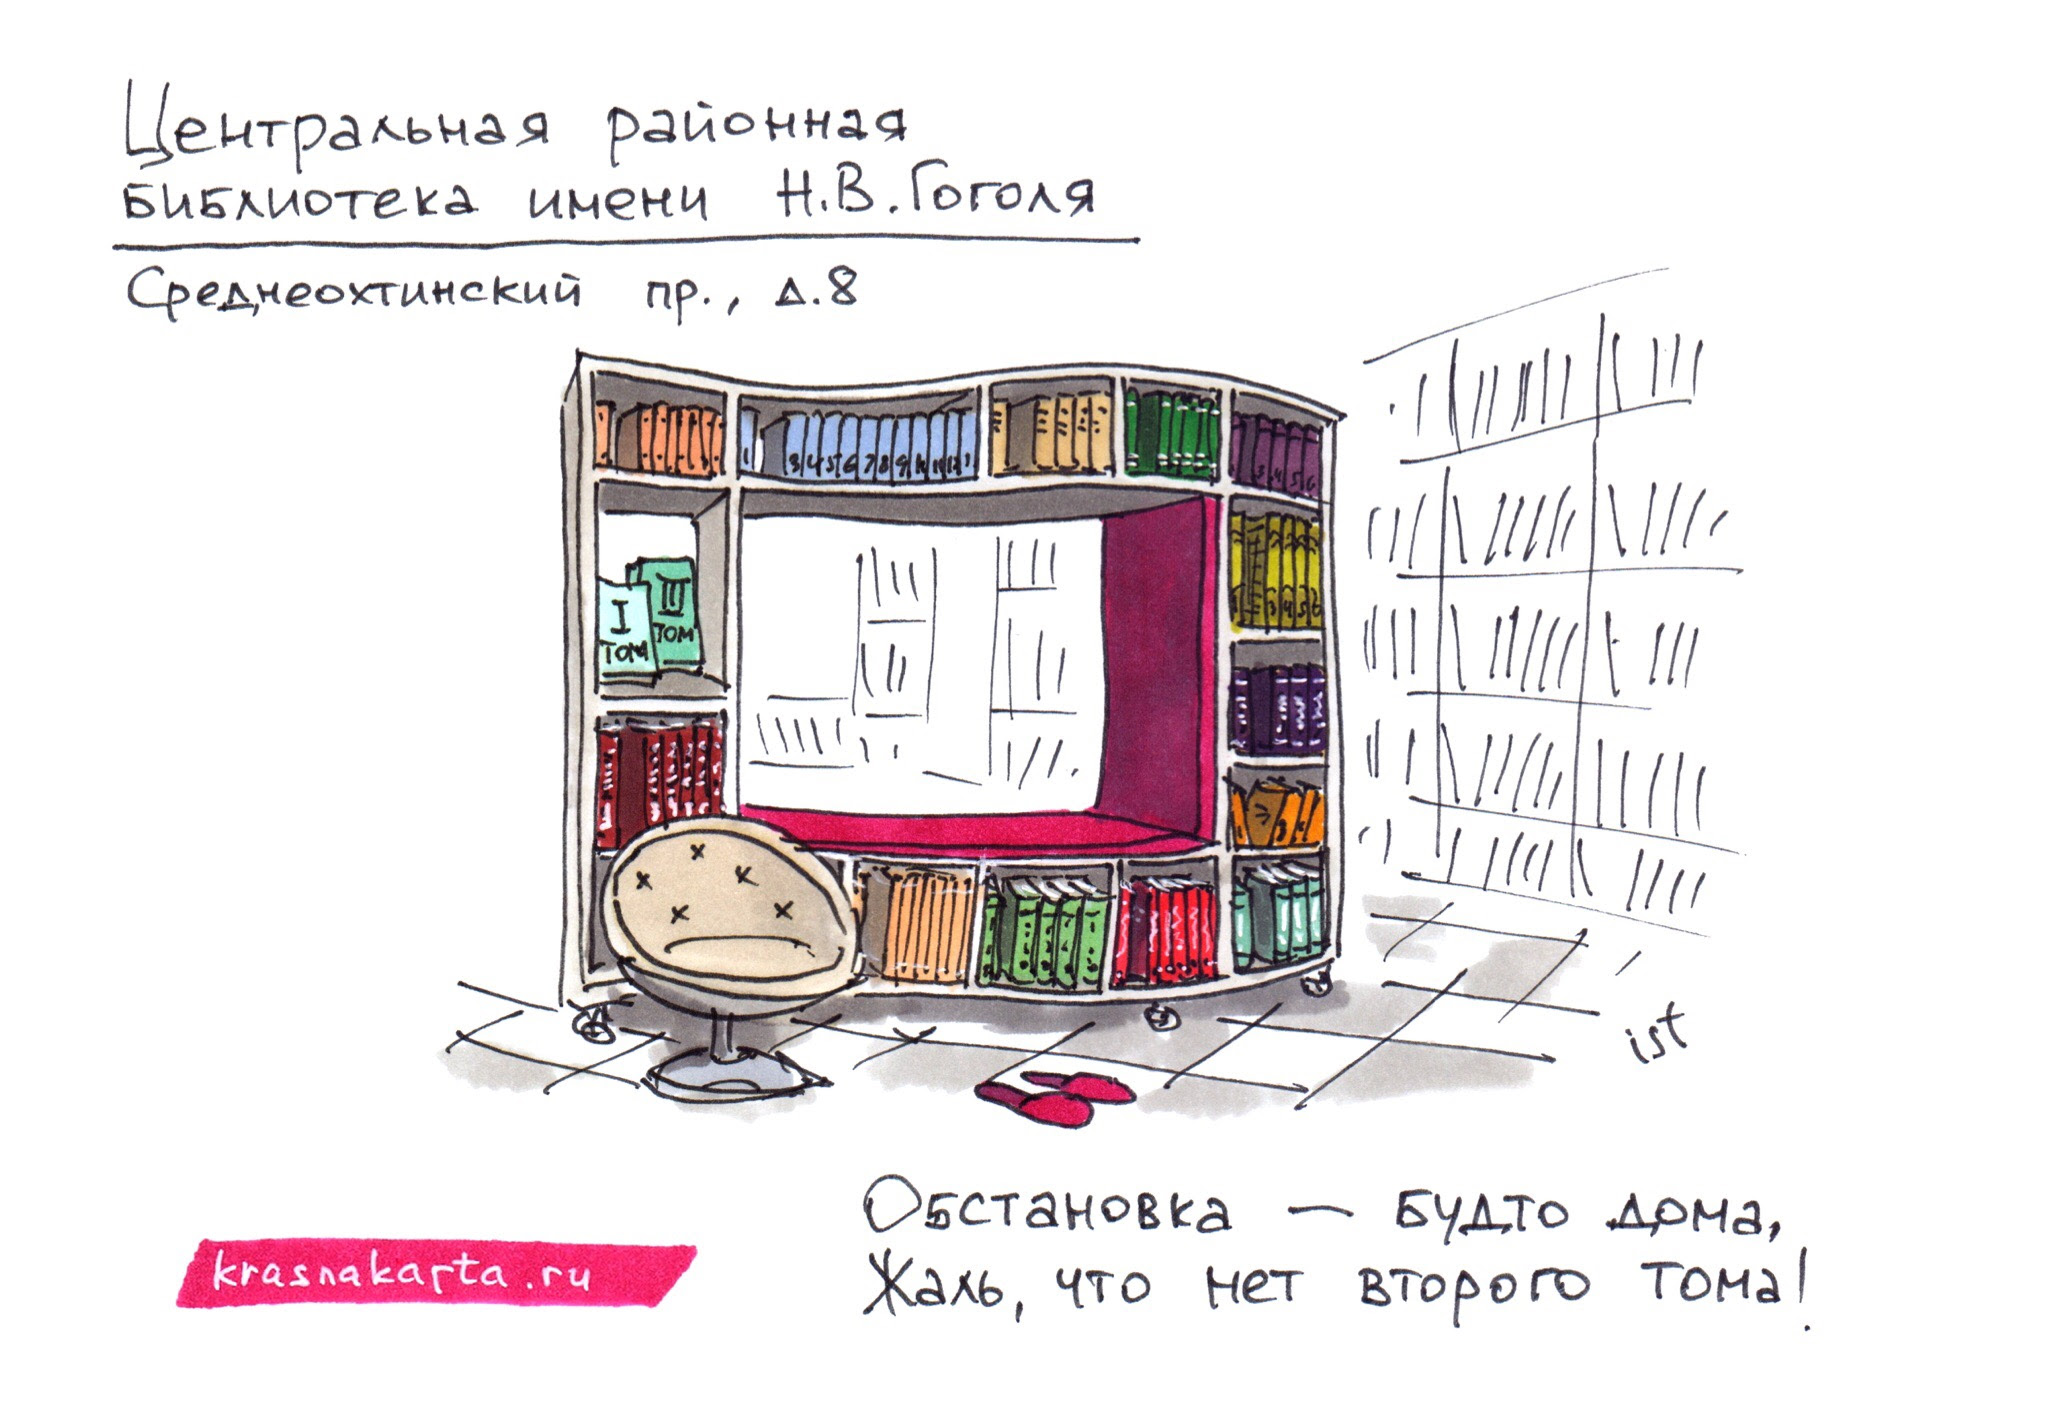 Центральная районная
библиотека имени Н.В.Гоголя
Среднеохтинский пр., д.8
1 3 4 5 6 7 8 9 10 11 12
3 4 5 6
I
ТОМ
III
ТОМ
3 4 5 6
ist
Обстановка — будто дома,
Жаль, что нет второго тома!
krasnakarta.ru